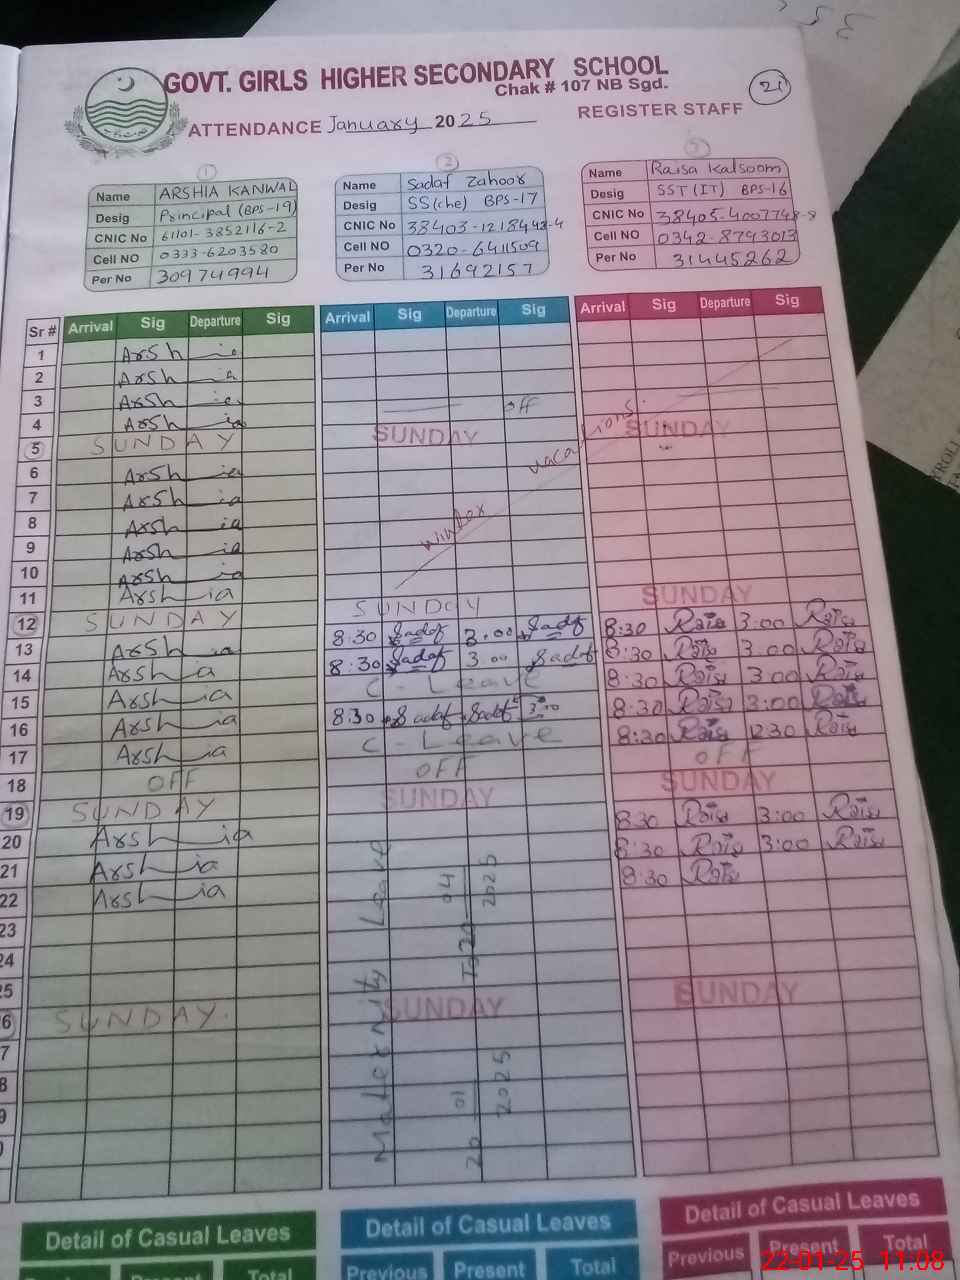 GOVT. GIRLS HIGHER SECONDARY SCHOOL
Chak # 107 NB Sgd.
21
ATTENDANCE January 2025 REGISTER STAFF
1
Name ARSHIA KANWAL
Desig Principal (BPS-19)
CNIC No 61101-3852116-2
Cell NO 0333-6203580
Per No 30974994
2
Name Sadaf Zahoor
Desig SS(che) BPS-17
CNIC No 38403-1218448-4
Cell NO 0320-6411509
Per No 31692157
Name Raisa Kalsoom
Desig SST(IT) BPS-16
CNIC No 38405-4007748-8
Cell NO 0342-8793013
Per No 31445262
Sr # Arrival Sig Departure Sig Arrival Sig Departure Sig Arrival Sig Departure Sig
1 Arshia
2 Arshia
3 Arshia off
4 Arshia
5 SUNDAY SUNDAY SUNDAY
6 Arshia
winter vacations.
7 Arshia
8 Arshia
9 Arshia
10 Arshia
11 Arshia
12 SUNDAY SUNDAY SUNDAY
13 Arshia 8:30 Sadaf 3:00 Sadaf 8:30 Raisa 3:00 Raisa
14 Arshia 8:30 Sadaf 3:00 Sadaf 8:30 Raisa 3:00 Raisa
15 Arshia C-Leave 8:30 Raisa 3:00 Raisa
16 Arshia 8:30 Sadaf Sadaf 3:00 8:30 Raisa 3:00 Raisa
17 Arshia C-Leave 8:30 Raisa 12:30 Raisa
18 OFF OFF OFF
19 SUNDAY SUNDAY SUNDAY
20 Arshia 8:30 Raisa 3:00 Raisa
21 Arshia 8:30 Raisa 3:00 Raisa
22 Arshia 8:30 Raisa
Maternity Leave
20 01 2025 To 20 04 2025
23
24
25
26 SUNDAY. SUNDAY SUNDAY
7
8
9
Detail of Casual Leaves Detail of Casual Leaves Detail of Casual Leaves
Previous Present Total Previous Present Total Previous Present Total
22-01-25 11:08